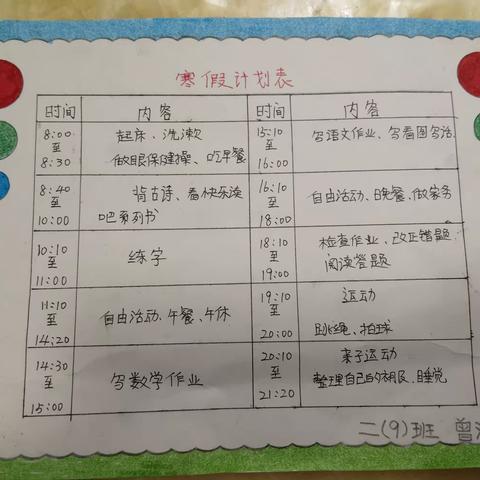 寒假计划表
时间 内容 时间 内容
8:00 至 8:30
起床、洗漱
做眼保健操、吃早餐
15:10 至 16:00
写语文作业、写看图写话
8:40 至 10:00
背古诗、看快乐读
吧系列书
16:10 至 18:00
自由活动、晚餐、做家务
10:10 至 11:00
练字
18:10 至 19:00
检查作业、改正错题
阅读答题
11:10 至 14:20
自由活动、午餐、午休
19:10 至 20:00
运动
跳绳、拍球
14:30 至 15:00
写数学作业
20:10 至 21:20
亲子运动
整理自己的衣服、睡觉
二(9)班 曾